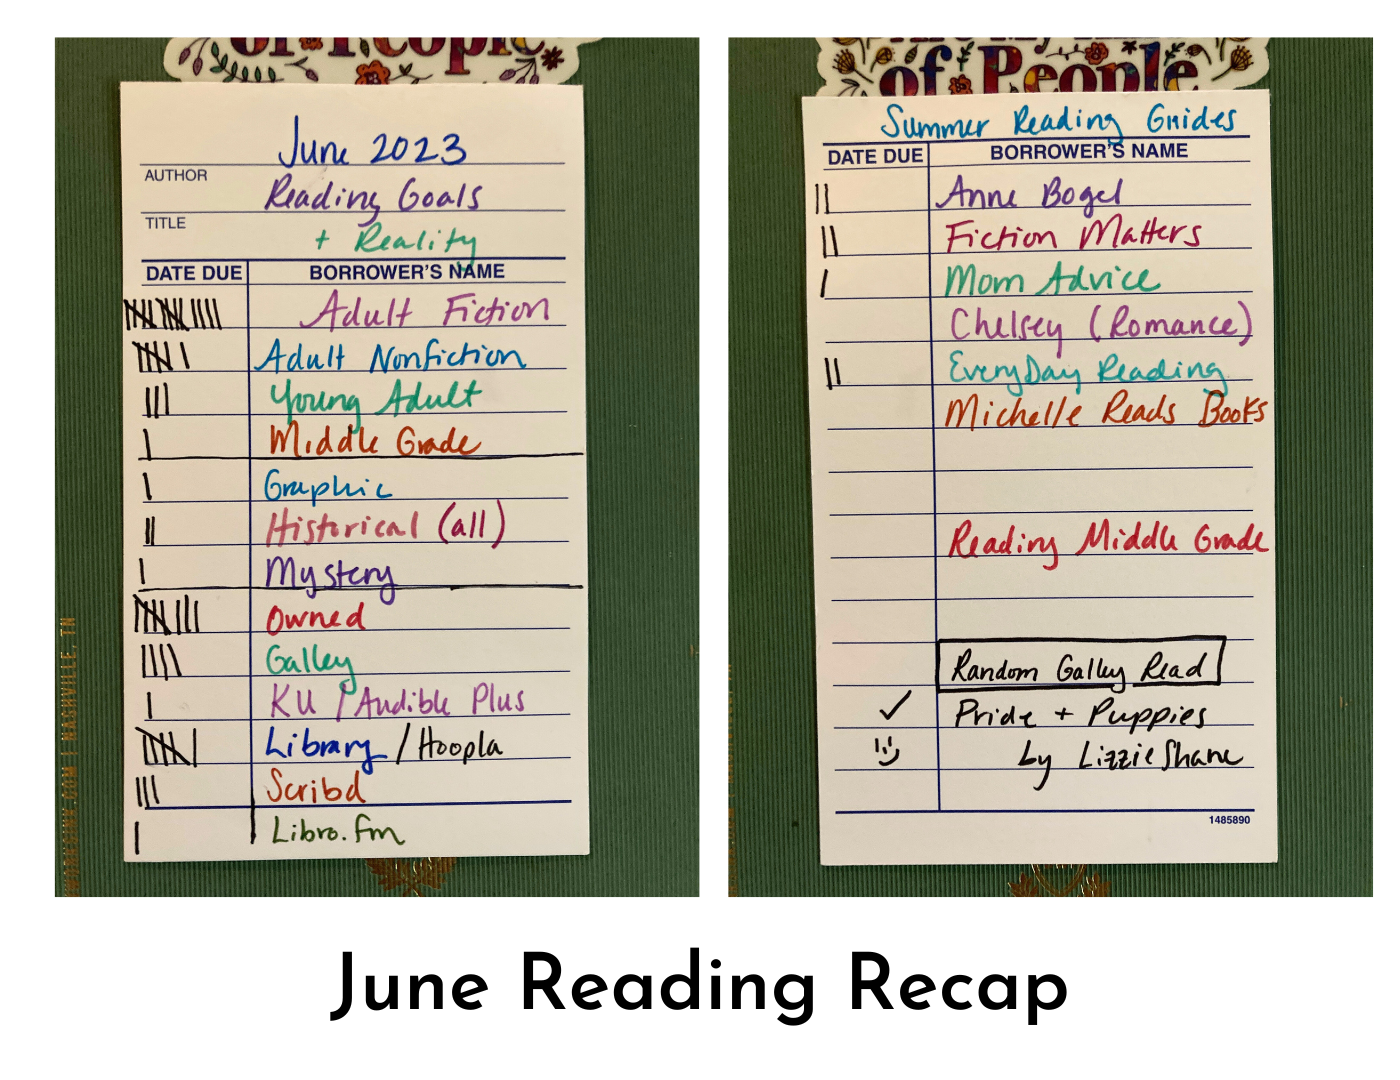 of People
June 2023
AUTHOR
Reading Goals
TITLE
+ Reality
DATE DUE BORROWER'S NAME
Adult Fiction
Adult Nonfiction
Young Adult
Middle Grade
Graphic
Historical (all)
Mystery
Owned
Galley
KU / Audible Plus
Library / Hoopla
Scribd
Libro.fm
NASHVILLE, TN
of People
Summer Reading Guides
DATE DUE BORROWER'S NAME
Anne Bogel
Fiction Matters
Mom Advice
Chelsey (Romance)
EveryDay Reading
Michelle Reads Books
Reading Middle Grade
Random Galley Read
✓ Pride + Puppies
by Lizzie Shane
1485890
June Reading Recap